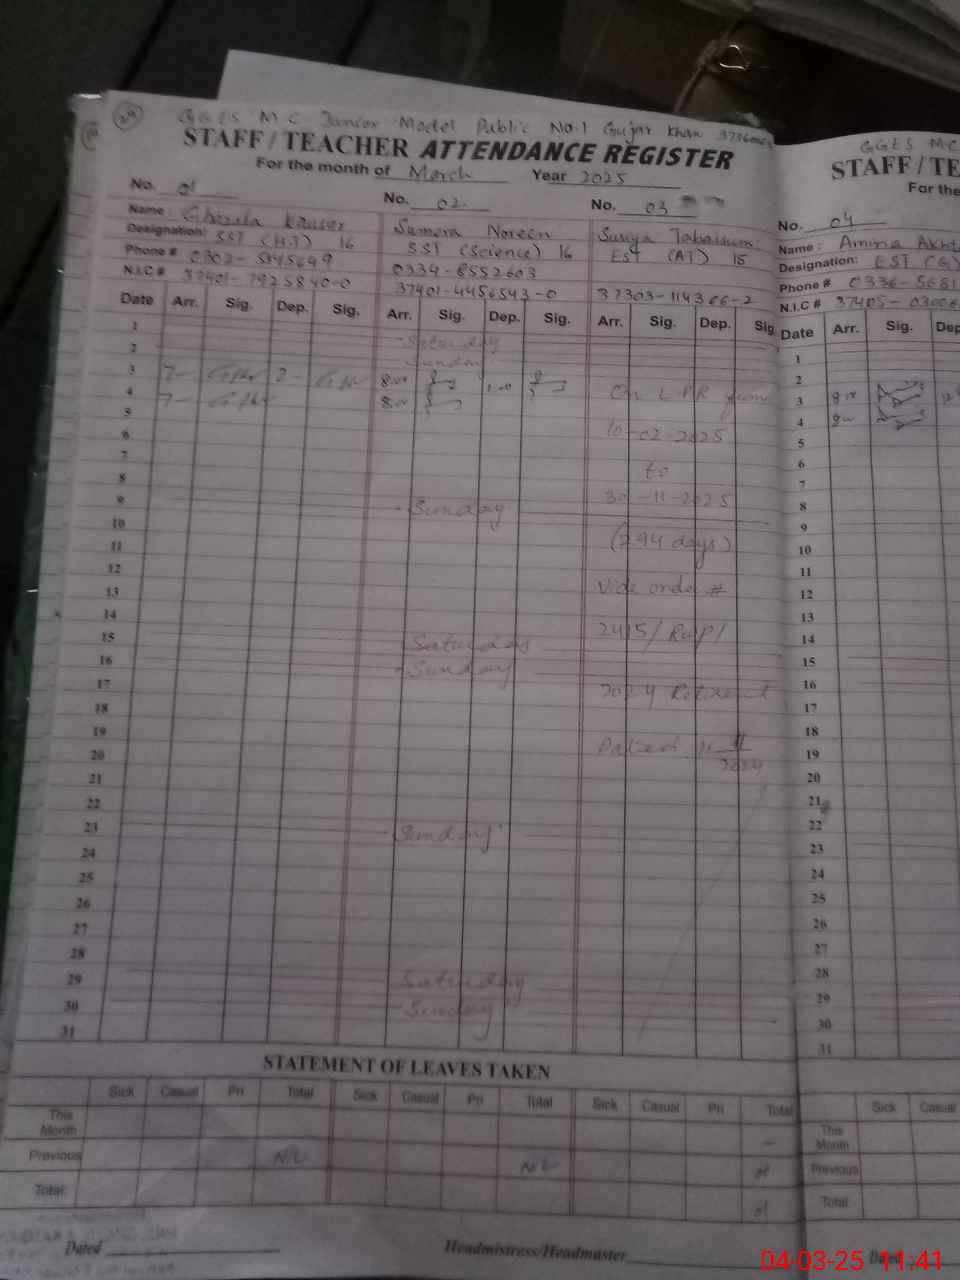 29
GGES M.C Junior Model Public No.1 Gujar Khan
STAFF / TEACHER ATTENDANCE REGISTER
For the month of March Year 2025
No. 01 No. 02 No. 03
Name: Kausar Sumera Noreen Tabassum
Designation: SST (H.T) 16 SST (Science) 16 EST (AT) 15
Phone # 0302- 0334-8552603
N.I.C # 37401-7925840-0 37401-4456543-0 37303-114366-2
Date Arr. Sig. Dep. Sig. Arr. Sig. Dep. Sig. Arr. Sig. Dep. Sig.
1 Saturday
2 Sunday
3 7- 2- 8:00 1:00 On LPR from
4 7- 8:00
5 10-02-2025
6
7 to
8 30-11-2025
9 Sunday
10 (294 days)
11
12 Vide order #
13
14 2415/Rwp/
15 Saturday
16 Sunday
17 2024 Retirement
18
19
20
21
22
23 Sunday
24
25
26
27
28
29 Saturday
30 Sunday
31
STATEMENT OF LEAVES TAKEN
Sick Casual Pri Total Sick Casual Pri Total Sick Casual Pri Total
This Month -
Previous NIL NIL 01
Total: 01
Dated Headmistress/Headmaster
GGES M.C
STAFF / TE
For the
No. 04
Name: Amina Akht
Designation: EST (G)
Phone # 0336-5681
N.I.C # 37405-0300
Date Arr. Sig. Dep
1
2
3 8:00
4 8:00
5
6
7
8
9
10
11
12
13
14
15
16
17
18
19
20
21
22
23
24
25
26
27
28
29
30
31
Sick Casual
This Month
Previous
Total
Dated
04-03-25 11:41